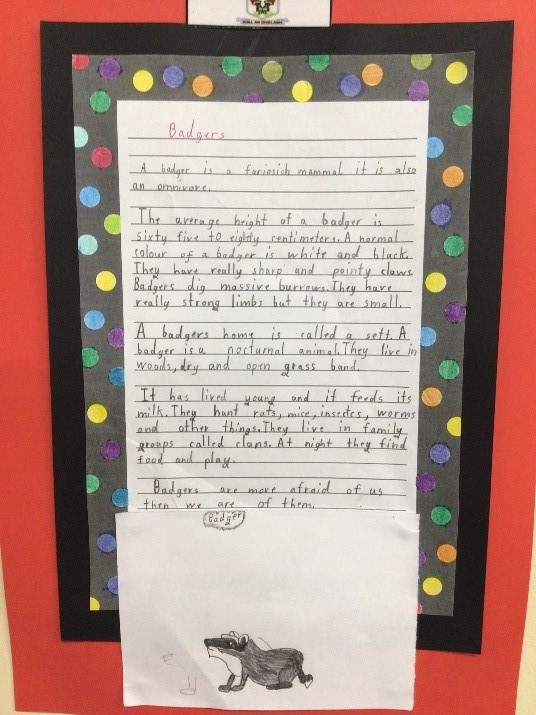 Badgers
A badger is a fariosish mammal it is also
an omnivore.
The average height of a badger is
sixty five to eighty centimeters. A normal
colour of a badger is white and black.
They have really sharp and pointy claws.
Badgers dig massive burrows. They have
really strong limbs but they are small.
A badgers home is called a sett. A
badger is a nocturnal animal. They live in
woods, dry and open grass band.
It has lived young and it feeds its
milk. They hunt rats, mice, insectes, worms
and other things. They live in family
groups called clans. At night they find
food and play.
Badgers are more afraid of us
then we are of them.
Badger